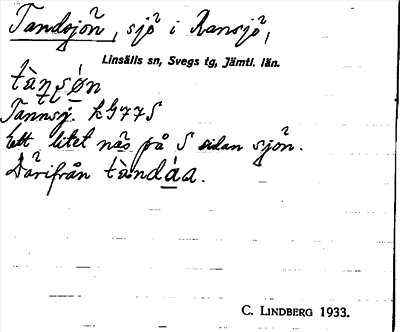 Tandsjön, sjö i Ransjö,
Linsälls sn, Svegs tg, Jämtl. län.
tàṇṣǿn
Tannsj. kG77S
Ett litet näs på S sidan sjön.
Därifrån tàndáa.
C. LINDBERG 1933.